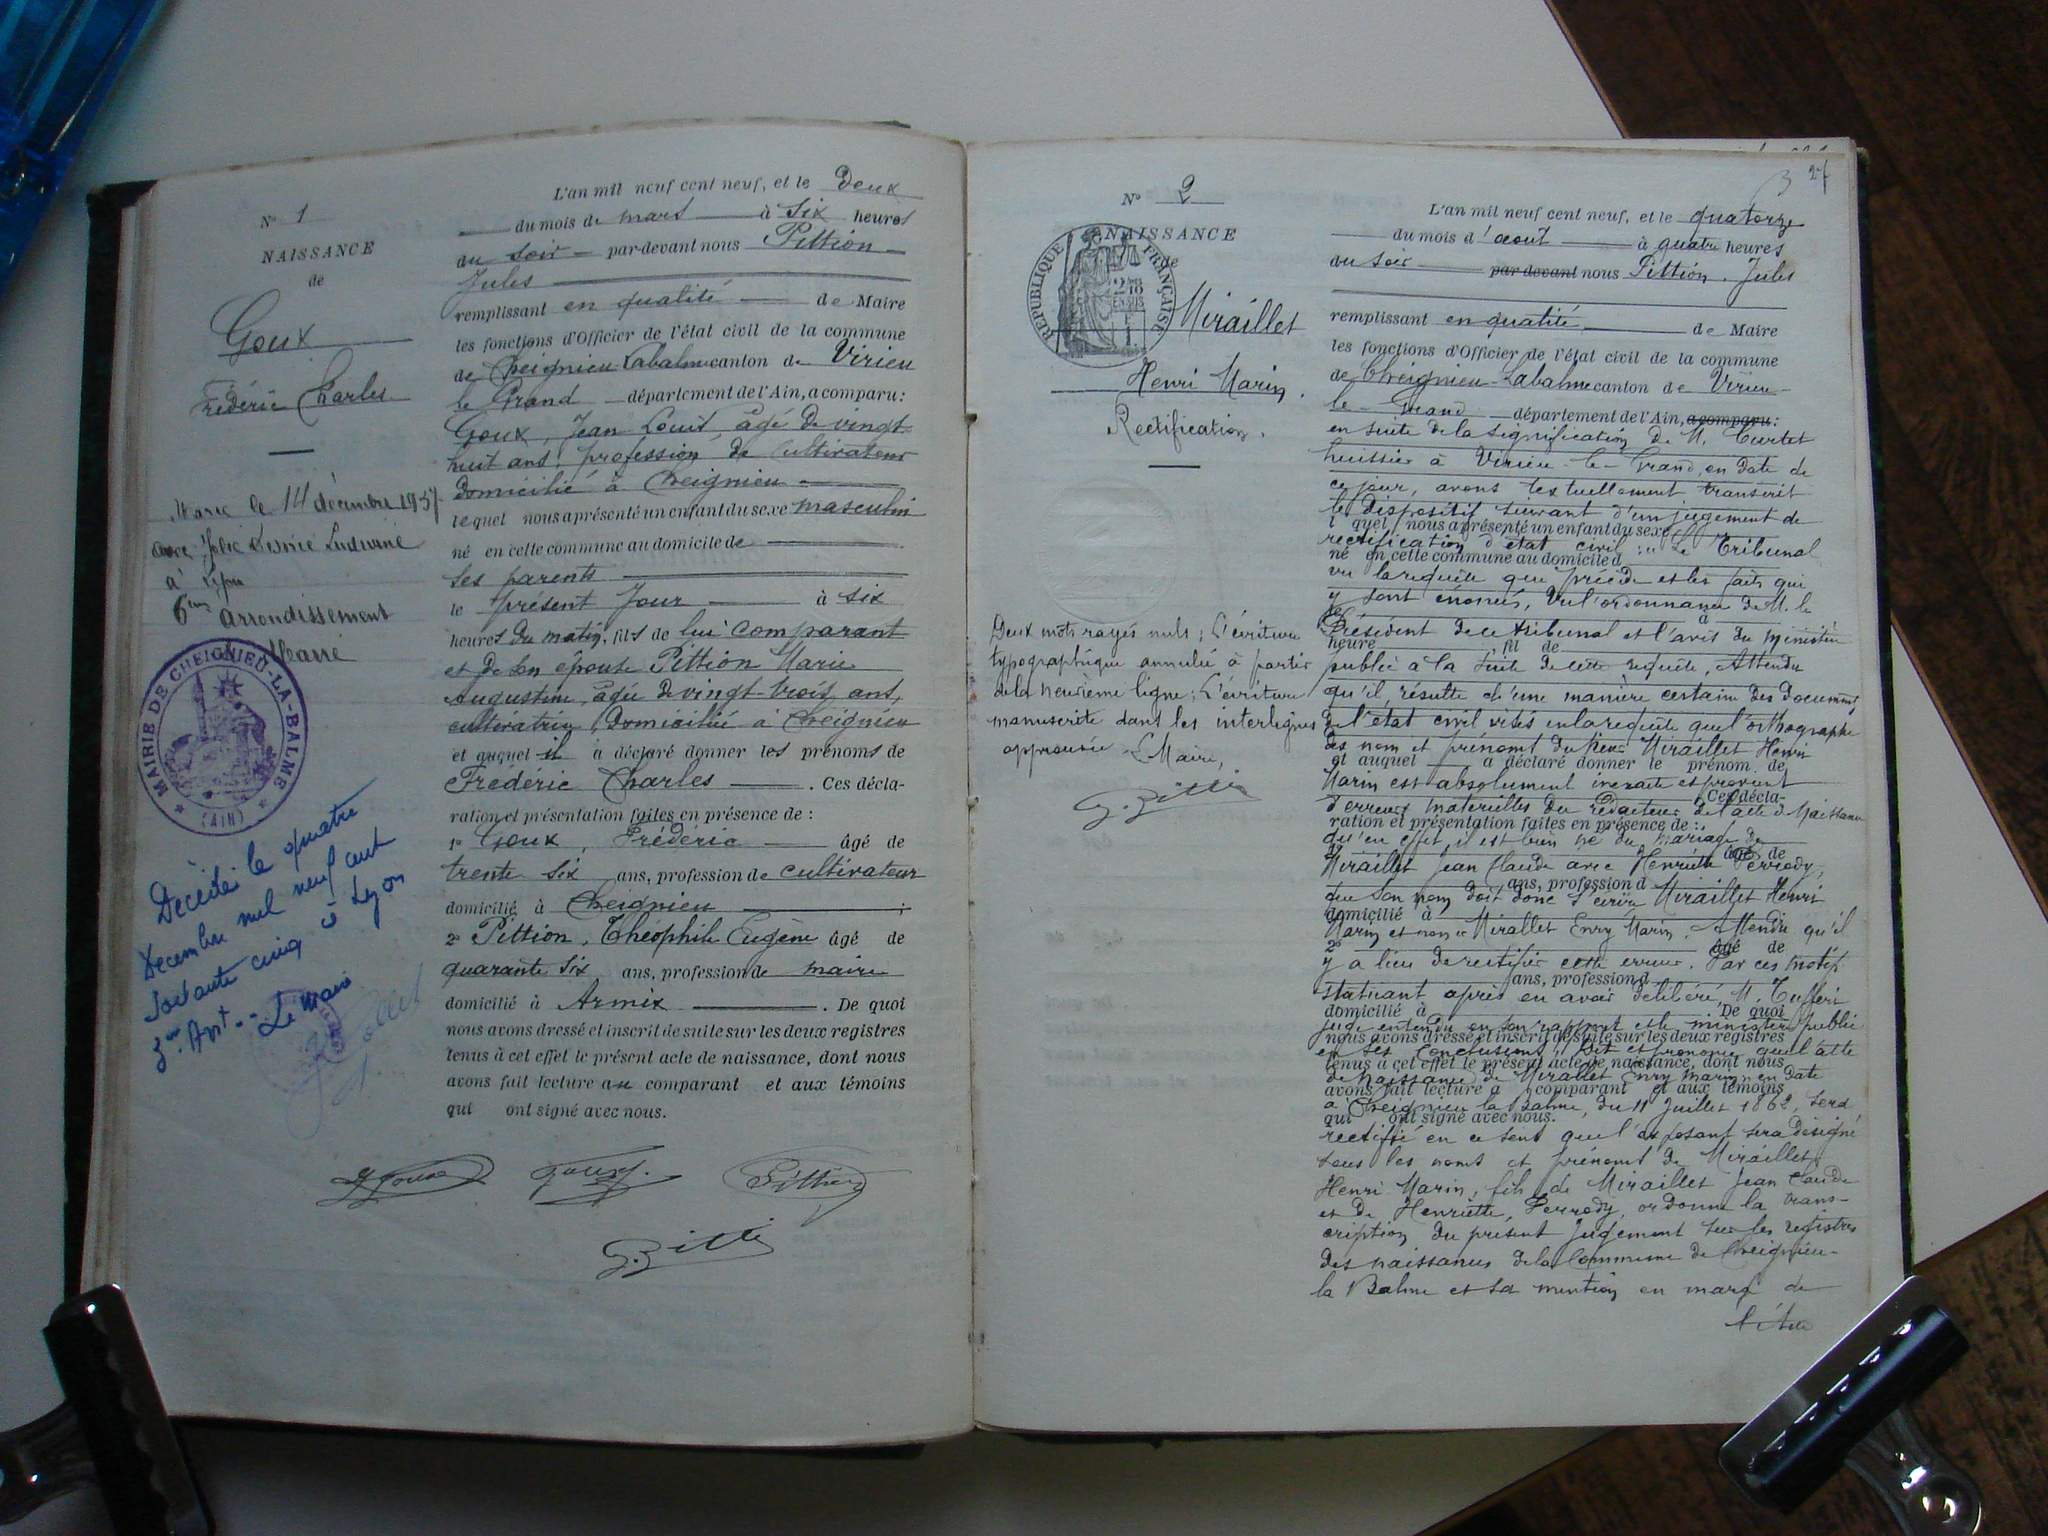 N° 1
NAISSANCE
de
Goux
Frédéric Charles
Marié le 14 décembre 1957
avec Jolie Désirée Ludivine
à Lyon
6ème arrondissement
MAIRIE DE CHEIGNIEU-LA-BALME
(AIN)
Décédé le quatre
Décembre mil neuf cent
soixante cinq à Lyon
3me Art. Le Maire
L'an mil neuf cent neuf, et le Deux
du mois de mars à six heures
du soir par-devant nous Pittion
Jules
remplissant en qualité de Maire
les fonctions d'Officier de l'état civil de la commune
de Cheignieu-Labalme canton de Virieu
le Grand département de l'Ain, a comparu:
Goux, Jean Louis, âgé de vingt-
huit ans, profession de Cultivateur
domicilié à Cheignieu
lequel nous a présenté un enfant du sexe masculin
né en cette commune au domicile de
ses parents
le présent jour à six
heures du matin, fils de lui comparant
et de son épouse Pittion Marie
Augustine, âgée de vingt-trois ans,
cultivatrice, domiciliée à Cheignieu
et auquel il a déclaré donner les prénoms de
Frédéric Charles . Ces décla-
ration et présentation faites en présence de :
1° Goux, Frédéric âgé de
trente six ans, profession de cultivateur
domicilié à Cheignieu ;
2° Pittion, Théophile Eugène âgé de
quarante six ans, profession de maire
domicilié à Armix . De quoi
nous avons dressé et inscrit de suite sur les deux registres
tenus à cet effet le présent acte de naissance, dont nous
avons fait lecture au comparant et aux témoins
qui ont signé avec nous.
Goux Pittion
J. Pittion
3 27
N° 2
NAISSANCE
de
REPUBLIQUE FRANÇAISE
Miraillet
Henri Marin
Rectification.
Deux mots rayés nuls; L'écriture
typographique annulée à partir
de la neuvième ligne; L'écriture
manuscrite dans les interlignes
approuvée. Le Maire,
J. Pittion
L'an mil neuf cent neuf, et le quatorze
du mois d'août à quatre heures
du soir par devant nous Pittion Jules
remplissant en qualité de Maire
les fonctions d'Officier de l'état civil de la commune
de Cheignieu-Labalme canton de Virieu-
le-Grand département de l'Ain, a comparu:
en suite de la signification de M. Curtet
huissier à Virieu-le-Grand, en date de
ce jour, avons textuellement transcrit
le dispositif suivant d'un jugement de
l quel nous a présenté un enfant du sexe
rectification d'état civil : "Le Tribunal
né en cette commune au domicile d
vu la requête que précède et les faits qui
y sont énoncés, Vu l'ordonnance de M. le
le à
Président de ce tribunal et l'avis du ministère
heure fil de
public à la suite de cette requête, Attendu
qu'il résulte d'une manière certaine des documents
de l'état civil visés en la requête que l'orthographe
des nom et prénoms du sieur Miraillet Henri
et auquel a déclaré donner le prénom de
Marin est absolument inexacte et provient
. Ces décla-
d'erreurs matérielles du rédacteur de l'acte de Naissance
ration et présentation faites en présence de :
qu'en effet, il est bien né du mariage de
âgé de
Miraillet Jean Claude avec Henriette Perrody,
ans, profession d
que son nom doit donc s'écrire Miraillet Henri
domicilié à
Marin et non Mirallet Enry Marin. Attendu qu'il
2° âgé de
y a lieu de rectifier cette erreur. Par ces motifs
ans, profession d
statuant après en avoir délibéré, M. Tufferi
domicilié à . De quoi
juge entendu en son rapport et le ministère public
nous avons dressé et inscrit de suite sur les deux registres
en ses conclusions; Dit et prononce que l'acte
tenus à cet effet le présent acte de naissance, dont nous
de naissance de Mirallet Enry Marin en date
avons fait lecture a comparant et aux témoins
à Cheignieu la Balme, du 11 Juillet 1862, sera
qui ont signé avec nous.
rectifié en ce sens que l'exposant sera désigné
sous les noms et prénoms de Miraillet
Henri Marin, fils de Miraillet Jean Claude
et de Henriette Perrody, ordonne la trans-
cription du présent jugement sur les registres
des naissances de la Commune de Cheignieu-
la Balme et sa mention en marge de
l'Acte